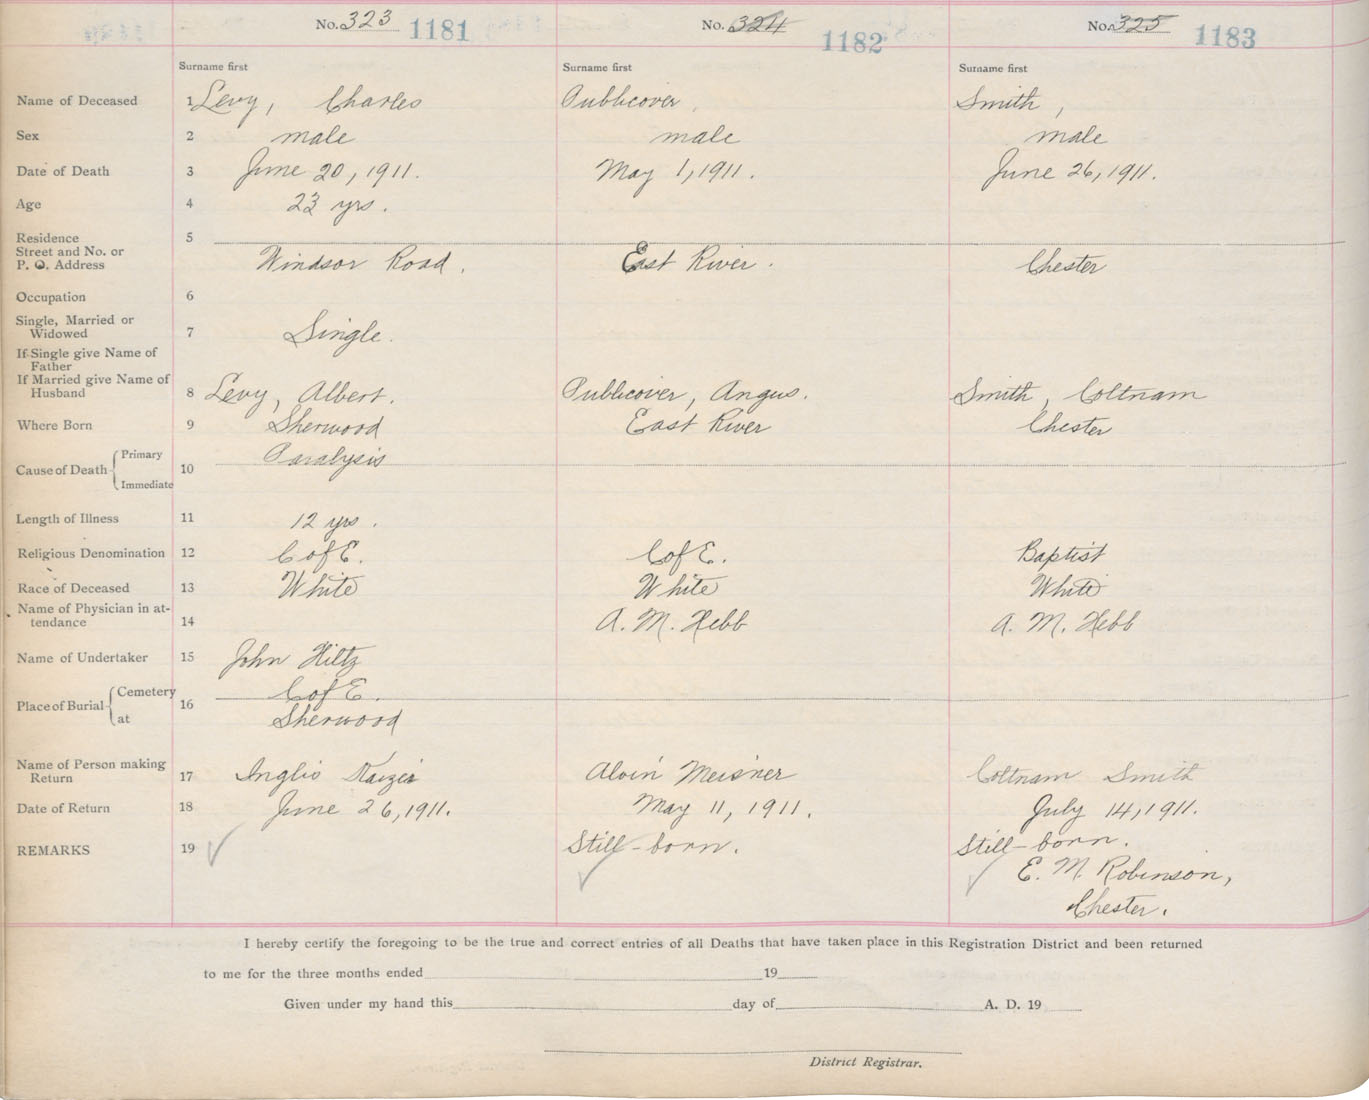 No. 323 1181 No. 324 1182 No. 325 1183
Surname first Surname first Surname first
Name of Deceased 1 Levy, Charles Publicover, Smith,
Sex 2 male male male
Date of Death 3 June 20, 1911. May 1, 1911. June 26, 1911.
Age 4 23 yrs.
Residence 5
Street and No. or
P. O. Address Windsor Road. East River. Chester
Occupation 6
Single, Married or
Widowed 7 Single.
If Single give Name of
Father
If Married give Name of
Husband 8 Levy, Albert. Publicover, Angus. Smith, Coltnam
Where Born 9 Sherwood East River Chester
Cause of Death Primary Paralysis
10
Immediate
Length of Illness 11 12 yrs.
Religious Denomination 12 C of E. C of E. Baptist
Race of Deceased 13 White White White
Name of Physician in at-
tendance 14 A. M. Hebb A. M. Hebb
Name of Undertaker 15 John Hiltz
Place of Burial Cemetery 16 C of E.
at Sherwood
Name of Person making
Return 17 Inglis Alvin Meisner Coltnam Smith
Date of Return 18 June 26, 1911. May 11, 1911. July 14, 1911.
REMARKS 19 Still-born. Still-born.
E. M. Robinson,
Chester.
I hereby certify the foregoing to be the true and correct entries of all Deaths that have taken place in this Registration District and been returned
to me for the three months ended 19
Given under my hand this day of A. D. 19
District Registrar.